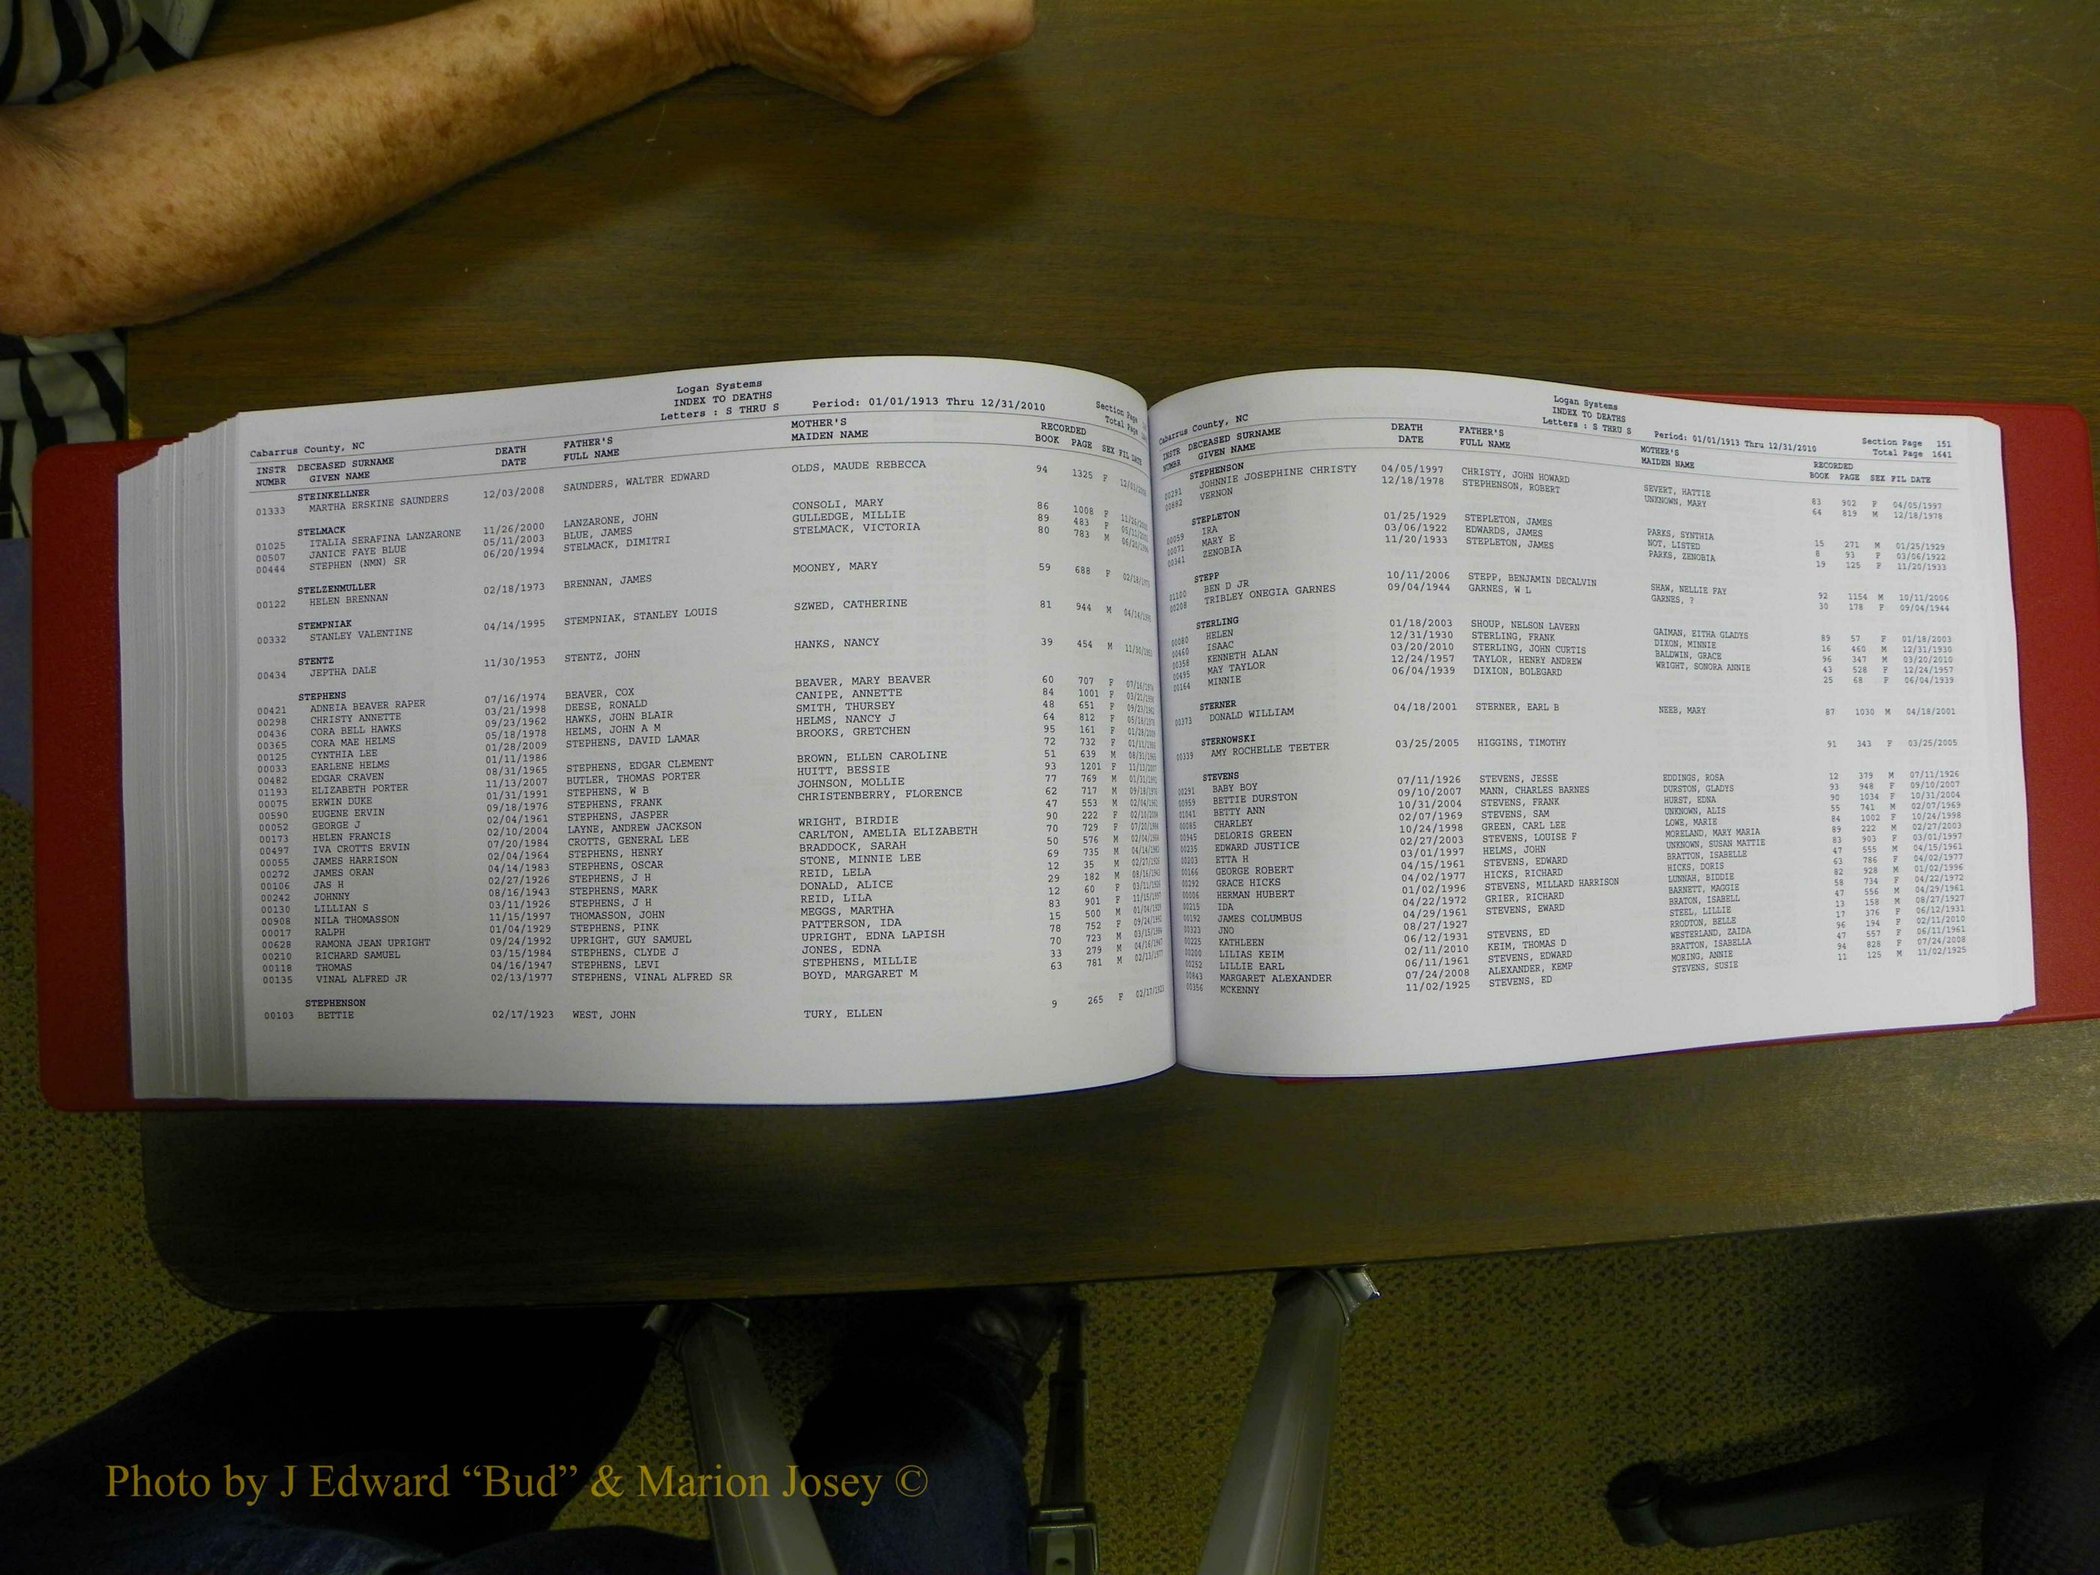 Logan Systems
INDEX TO DEATHS
Letters : S THRU S Period: 01/01/1913 Thru 12/31/2010
Section Page
Total Page
Cabarrus County, NC
INSTR DECEASED SURNAME DEATH FATHER'S MOTHER'S RECORDED
NUMBR GIVEN NAME DATE FULL NAME MAIDEN NAME BOOK PAGE SEX FIL DATE
STEINKELLNER
01333 MARTHA ERSKINE SAUNDERS 12/03/2008 SAUNDERS, WALTER EDWARD OLDS, MAUDE REBECCA 94 1325 F
STELMACK
01025 ITALIA SERAFINA LANZARONE 11/26/2000 LANZARONE, JOHN CONSOLI, MARY 86 1008 F 11/26/2000
00507 JANICE FAYE BLUE 05/11/2003 BLUE, JAMES GULLEDGE, MILLIE 89 483 F
00444 STEPHEN (NMN) SR 06/20/1994 STELMACK, DIMITRI STELMACK, VICTORIA 80 783 M 06/20/1994
STELZENMULLER
00122 HELEN BRENNAN 02/18/1973 BRENNAN, JAMES MOONEY, MARY 59 688 F 02/18/1973
STEMPNIAK
00332 STANLEY VALENTINE 04/14/1995 STEMPNIAK, STANLEY LOUIS SZWED, CATHERINE 81 944 M 04/14/1995
STENTZ
00434 JEPTHA DALE 11/30/1953 STENTZ, JOHN HANKS, NANCY 39 454 M 11/30/1953
STEPHENS
00421 ADNEIA BEAVER RAPER 07/16/1974 BEAVER, COX BEAVER, MARY BEAVER 60 707 F 07/16/1974
00298 CHRISTY ANNETTE 03/21/1998 DEESE, RONALD CANIPE, ANNETTE 84 1001 F 03/21/1998
00436 CORA BELL HAWKS 09/23/1962 HAWKS, JOHN BLAIR SMITH, THURSEY 48 651 F 09/23/1962
00365 CORA MAE HELMS 05/18/1978 HELMS, JOHN A M HELMS, NANCY J 64 812 F 05/18/1978
00125 CYNTHIA LEE 01/28/2009 STEPHENS, DAVID LAMAR BROOKS, GRETCHEN 95 161 F 01/28/2009
00033 EARLENE HELMS 01/11/1986 72 732 F
00482 EDGAR CRAVEN 08/31/1965 STEPHENS, EDGAR CLEMENT BROWN, ELLEN CAROLINE 51 639 M 08/31/1965
01193 ELIZABETH PORTER 11/13/2007 BUTLER, THOMAS PORTER HUITT, BESSIE 93 1201 F 11/13/2007
00075 ERWIN DUKE 01/31/1991 STEPHENS, W B JOHNSON, MOLLIE 77 769 M
00590 EUGENE ERVIN 09/18/1976 STEPHENS, FRANK CHRISTENBERRY, FLORENCE 62 717 M 09/18/1976
00052 GEORGE J 02/04/1961 STEPHENS, JASPER 47 553 M 02/04/1961
00173 HELEN FRANCIS 02/10/2004 LAYNE, ANDREW JACKSON WRIGHT, BIRDIE 90 222 F 02/10/2004
00497 IVA CROTTS ERVIN 07/20/1984 CROTTS, GENERAL LEE CARLTON, AMELIA ELIZABETH 70 729 F 07/20/1984
00055 JAMES HARRISON 02/04/1964 STEPHENS, HENRY BRADDOCK, SARAH 50 576 M 02/04/1964
00272 JAMES ORAN 04/14/1983 STEPHENS, OSCAR STONE, MINNIE LEE 69 735 M 04/14/1983
00106 JAS H 02/27/1926 STEPHENS, J H REID, LELA 12 35 M 02/27/1926
00242 JOHNNY 08/16/1943 STEPHENS, MARK DONALD, ALICE 29 182 M 08/16/1943
00130 LILLIAN S 03/11/1926 STEPHENS, J H REID, LILA 12 60 F 03/11/1926
00908 NILA THOMASSON 11/15/1997 THOMASSON, JOHN MEGGS, MARTHA 83 901 F 11/15/1997
00017 RALPH 01/04/1929 STEPHENS, PINK PATTERSON, IDA 15 500 M 01/04/1929
00628 RAMONA JEAN UPRIGHT 09/24/1992 UPRIGHT, GUY SAMUEL UPRIGHT, EDNA LAPISH 78 752 F 09/24/1992
00210 RICHARD SAMUEL 03/15/1984 STEPHENS, CLYDE J JONES, EDNA 70 723 M 03/15/1984
00118 THOMAS 04/16/1947 STEPHENS, LEVI STEPHENS, MILLIE 33 279 M 04/16/1947
00135 VINAL ALFRED JR 02/13/1977 STEPHENS, VINAL ALFRED SR BOYD, MARGARET M 63 781 M 02/13/1977
STEPHENSON
00103 BETTIE 02/17/1923 WEST, JOHN TURY, ELLEN 9 265 F 02/17/1923
Logan Systems
INDEX TO DEATHS
Letters : S THRU S Period: 01/01/1913 Thru 12/31/2010
Section Page 151
Total Page 1641
Cabarrus County, NC
INSTR DECEASED SURNAME DEATH FATHER'S MOTHER'S RECORDED
NUMBR GIVEN NAME DATE FULL NAME MAIDEN NAME BOOK PAGE SEX FIL DATE
STEPHENSON
00291 JOHNNIE JOSEPHINE CHRISTY 04/05/1997 CHRISTY, JOHN HOWARD SEVERT, HATTIE 83 902 F 04/05/1997
00892 VERNON 12/18/1978 STEPHENSON, ROBERT UNKNOWN, MARY 64 819 M 12/18/1978
STEPLETON
00059 IRA 01/25/1929 STEPLETON, JAMES PARKS, SYNTHIA 15 271 M 01/25/1929
00071 MARY E 03/06/1922 EDWARDS, JAMES NOT, LISTED 8 93 F 03/06/1922
00341 ZENOBIA 11/20/1933 STEPLETON, JAMES PARKS, ZENOBIA 19 125 F 11/20/1933
STEPP
01100 BEN D JR 10/11/2006 STEPP, BENJAMIN DECALVIN SHAW, NELLIE FAY 92 1154 M 10/11/2006
00208 TRIBLEY ONEGIA GARNES 09/04/1944 GARNES, W L GARNES, ? 30 178 F 09/04/1944
STERLING
00080 HELEN 01/18/2003 SHOUP, NELSON LAVERN GAIMAN, EITHA GLADYS 89 57 F 01/18/2003
00460 ISAAC 12/31/1930 STERLING, FRANK DIXON, MINNIE 16 460 M 12/31/1930
00358 KENNETH ALAN 03/20/2010 STERLING, JOHN CURTIS BALDWIN, GRACE 96 347 M 03/20/2010
00495 MAY TAYLOR 12/24/1957 TAYLOR, HENRY ANDREW WRIGHT, SONORA ANNIE 43 528 F 12/24/1957
00164 MINNIE 06/04/1939 DIXION, BOLEGARD 25 68 F 06/04/1939
STERNER
00373 DONALD WILLIAM 04/18/2001 STERNER, EARL B NEEB, MARY 87 1030 M 04/18/2001
STERNOWSKI
00339 AMY ROCHELLE TEETER 03/25/2005 HIGGINS, TIMOTHY 91 343 F 03/25/2005
STEVENS
00291 BABY BOY 07/11/1926 STEVENS, JESSE EDDINGS, ROSA 12 379 M 07/11/1926
00959 BETTIE DURSTON 09/10/2007 MANN, CHARLES BARNES DURSTON, GLADYS 93 948 F 09/10/2007
01041 BETTY ANN 10/31/2004 STEVENS, FRANK HURST, EDNA 90 1034 F 10/31/2004
00085 CHARLEY 02/07/1969 STEVENS, SAM UNKNOWN, ALIS 55 741 M 02/07/1969
00945 DELORIS GREEN 10/24/1998 GREEN, CARL LEE LOWE, MARIE 84 1002 F 10/24/1998
00235 EDWARD JUSTICE 02/27/2003 STEVENS, LOUISE F MORELAND, MARY MARIA 89 222 M 02/27/2003
00203 ETTA H 03/01/1997 HELMS, JOHN UNKNOWN, SUSAN MATTIE 83 903 F 03/01/1997
00166 GEORGE ROBERT 04/15/1961 STEVENS, EDWARD BRATTON, ISABELLE 47 555 M 04/15/1961
00292 GRACE HICKS 04/02/1977 HICKS, RICHARD HICKS, DORIS 63 786 F 04/02/1977
00006 HERMAN HUBERT 01/02/1996 STEVENS, MILLARD HARRISON LUNNAH, BIDDIE 82 928 M 01/02/1996
00215 IDA 04/22/1972 GRIER, RICHARD BARNETT, MAGGIE 58 734 F 04/22/1972
00192 JAMES COLUMBUS 04/29/1961 STEVENS, EWARD BRATON, ISABELL 47 556 M 04/29/1961
00323 JNO 08/27/1927 STEEL, LILLIE 13 158 M 08/27/1927
00225 KATHLEEN 06/12/1931 STEVENS, ED RRODTON, BELLE 17 376 F 06/12/1931
00200 LILIAS KEIM 02/11/2010 KEIM, THOMAS D WESTERLAND, ZAIDA 96 194 F 02/11/2010
00252 LILLIE EARL 06/11/1961 STEVENS, EDWARD BRATTON, ISABELLA 47 557 F 06/11/1961
00843 MARGARET ALEXANDER 07/24/2008 ALEXANDER, KEMP MORING, ANNIE 94 828 F 07/24/2008
00356 MCKENNY 11/02/1925 STEVENS, ED STEVENS, SUSIE 11 125 M 11/02/1925
Photo by J Edward “Bud” & Marion Josey ©